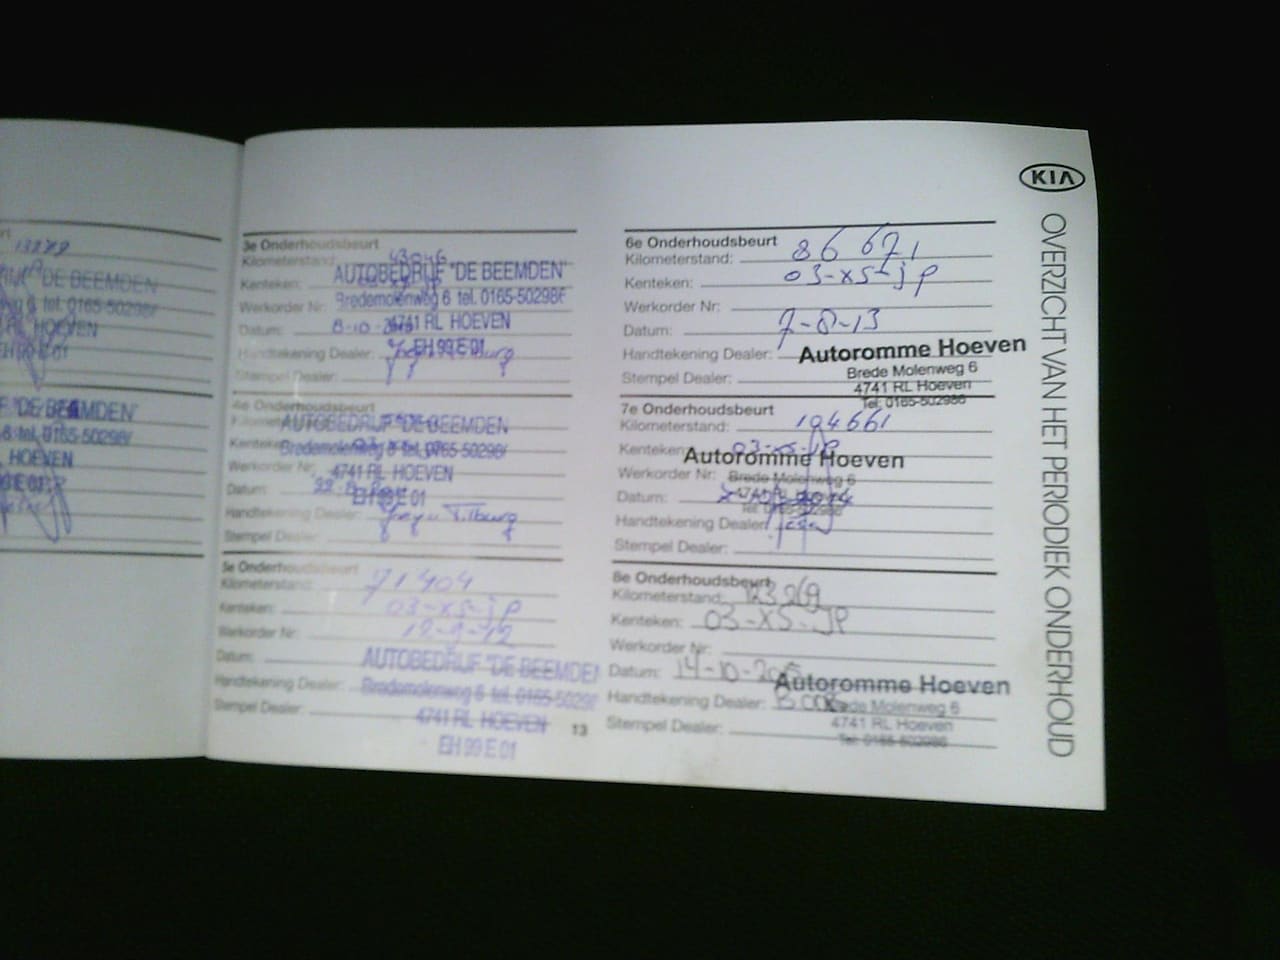 13279
"DE BEEMDEN"
6 tel. 0165-50298
HOEVEN
"DE BEEMDEN"
6 tel. 0165-50298
HOEVEN
3e Onderhoudsbeurt
Kilometerstand: 43046
AUTOBEDRIJF "DE BEEMDEN"
Kenteken:
Bredemolenweg 6 tel. 0165-50298
Werkorder Nr:
4741 RL HOEVEN
Datum: 8-10-
EH 99 E 01
Handtekening Dealer:
Stempel Dealer:
4e Onderhoudsbeurt
AUTOBEDRIJF "DE BEEMDEN
Kenteken:
Bredemolenweg 6 tel. 0165-50298
Werkorder Nr:
4741 RL HOEVEN
Datum:
EH 99 E 01
Handtekening Dealer:
Stempel Dealer:
5e Onderhoudsbeurt
Kilometerstand: 71404
Kenteken: 03-XS-JP
Werkorder Nr: 12-9-12
Datum:
AUTOBEDRIJF "DE BEEMDEN
Handtekening Dealer:
Bredemolenweg 6 tel. 0165-50298
Stempel Dealer:
4741 RL HOEVEN
EH 99 E 01
13
6e Onderhoudsbeurt
Kilometerstand: 86671
Kenteken: 03-XS-JP
Werkorder Nr:
Datum: 7-8-13
Handtekening Dealer:
Autoromme Hoeven
Brede Molenweg 6
Stempel Dealer:
4741 RL Hoeven
Tel: 0165-502986
7e Onderhoudsbeurt
Kilometerstand: 104661
Kenteken: 03-XS-JP
Autoromme Hoeven
Werkorder Nr:
Brede Molenweg 6
Datum:
4741 RL Hoeven
Tel: 0165-502986
Handtekening Dealer:
Stempel Dealer:
8e Onderhoudsbeurt
Kilometerstand: 123269
Kenteken: 03-XS-JP
Werkorder Nr:
Datum: 14-10-2015
Autoromme Hoeven
Handtekening Dealer:
Brede Molenweg 6
4741 RL Hoeven
Stempel Dealer:
Tel: 0165-502986
KIA
OVERZICHT VAN HET PERIODIEK ONDERHOUD